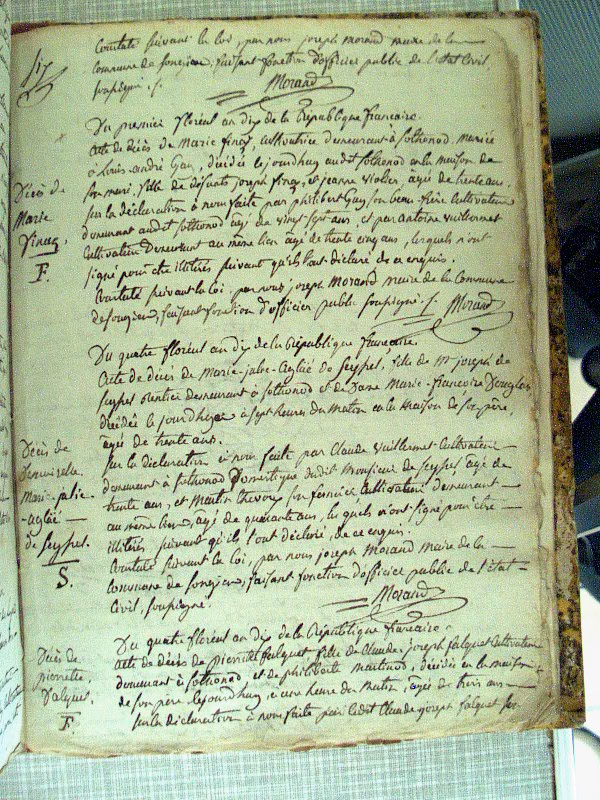 Constaté suivant la loi, par nous joseph morand maire de la
commune de songieu, faisant fonction d'officier public de l'état Civil,
soussigné ./.
Morand
Du premier floréal an dix de la République francaise.
Acte de décès de Marie Vinay, Cultivatrice demeurant à Sothonod, mariée
à Louis-andré Gay, décédée le jourdhuy audit Sothonod en la maison de
son mari, fille de défunts joseph Vinay, et jeanne violier, âgée de trente ans,
sur la déclaration à nous faite par philibert Gay son beau-frère Cultivateur
demeurant audit Sothonod âgé de vingt sept ans, et par antoine vuillermet
Cultivateur Demeurant au même lieu âgé de trente cinq ans, lesquels n'ont
signé pour être illitérés suivant qu'ils l'ont déclaré de ce enquis.
Constaté suivant la loi, par nous joseph Morand maire de la Commune
de songieu, faisant fonction d'officier public soussigné ./. Morand
Décès de
Marie
Vinay.
F.
Du quatre floréal an dix de la République française.
Acte de décès de Marie-julie-aglaé de Seyssel, fille de Mr joseph de
Seyssel Rentier demeurant à Sothonod et de Dame Marie-francoise Douglas,
décédée le jourdhuy à sept heures du Matin en la maison de son père,
âgée de trente ans.
Sur la déclaration à nous faite par Claude vuillermet Cultivateur
demeurant à Sothonod Domestique dudit Monsieur de Seyssel âgé de
trente ans, et Martin Chevroz son fermier Cultivateur demeurant
au même lieu, âgé de quarante ans, lesquels n'ont signé pour être
illitérés suivant qu'ils l'ont déclaré, de ce enquis.
Constaté suivant la loi, par nous joseph Morand Maire de la
Commune de songieu, faisant fonction d'officier public de l'état
Civil, soussigné.
Morand
Décès de
Demoiselle
Marie-julie
-aglaé
de Seyssel.
S.
Du quatre floréal an dix de la République francaise.
Acte de décès de pierrette falquet fille de Claude-joseph falquet Cultivateur
demeurant à Sothonod, et de philiberte martinod, décédée en la maison
de son père le jourdhuy, à une heure du Matin, âgée de trois ans
sur la déclaration à nous faite par ledit Claude joseph falquet son
Décès de
pierrette
falquet.
F.